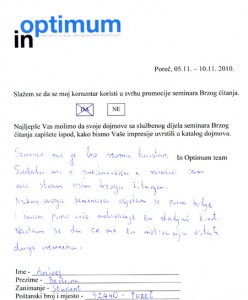 in optimum
Poreč, 05.11. – 10.11. 2010.
Slažem se da se moj komentar koristi u svrhu promocije seminara Brzog čitanja.
DA NE
Najljepše Vas molimo da svoje dojmove sa službenog dijela seminara Brzog
čitanja zapišete ispod, kako bismo Vaše impresije uvrstili u katalog dojmova.
Seminar mi je bio veoma koristan.
In Optimum team
sam
nisam osim brzog čitanja.
Nakon ovog seminara osjećam se puno bolje
i imam puno više motivacije za daljnji život.
Nadam se da će mi ta motivacija ostati
dugo vremena.
Ime - Andrej
Prezime -
Zanimanje - Student
Poštanski broj i mjesto - 52440 - Poreč